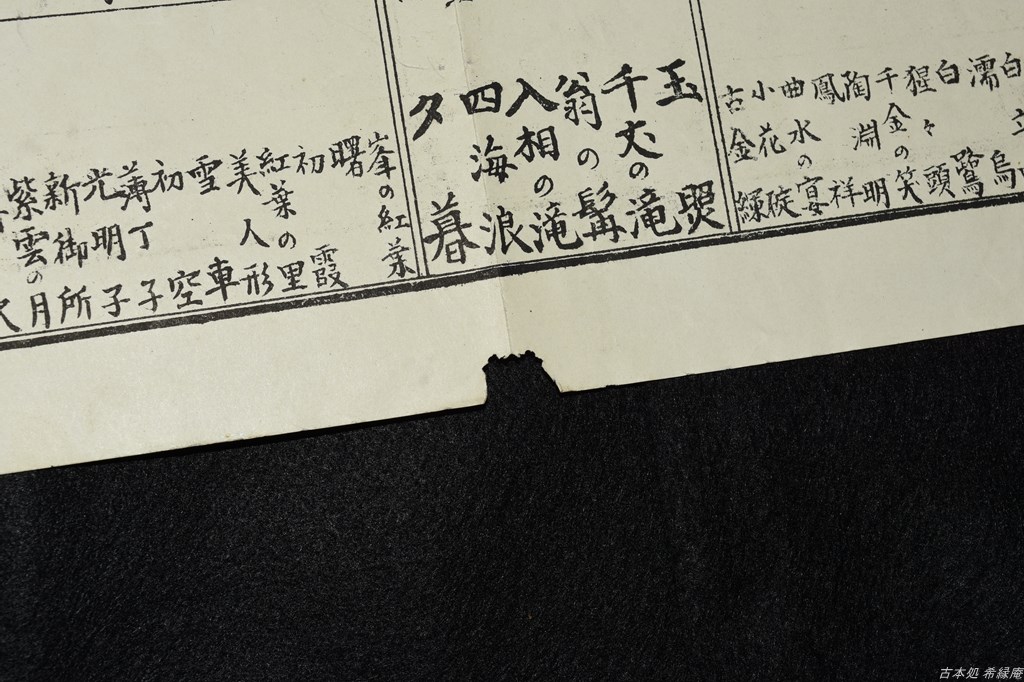 濡烏
白鷺
猩々頭
千金の笑
陶淵明
鳳祥
曲水の宴
小花碇
古金
玉
千丈の滝
翁の髯
入相の滝
四海浪
夕暮
峯の紅葉
曙
初霞
紅葉の里
美人形
雪車
初空
薄丁子
光明子
新御所
紫雲の月
古本処 希縁庵